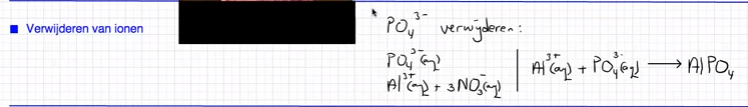 Verwijderen van ionen
PO₄³⁻ verwijderen:
PO₄³⁻(aq)
Al³⁺(aq) + 3NO₃⁻(aq)
Al³⁺(aq) + PO₄³⁻(aq) ⟶ AlPO₄